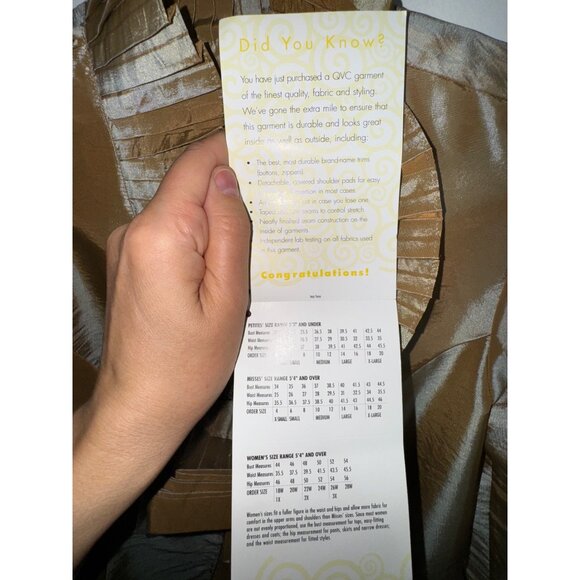 Did You Know?
You have just purchased a QVC garment
of the finest quality, fabric and styling.
We've gone the extra mile to ensure that
this garment is durable and looks great
inside as well as outside, including:
• The best, most durable brand-name trims
(buttons, zippers)
• Detachable, covered shoulder pads for easy
in most cases
• in case you lose one
• Taped seams to control stretch
• Neatly finished seam construction on the
inside of garments
Independent lab testing on all fabrics used
in this garment.
Congratulations!
PETITES' SIZE RANGE 5'3" AND UNDER
Bust Measures 35.5 36.5 38 39.5 41 42.5 44
Waist Measures 27.5 29 30.5 32
Hip Measures 37 38 39.5 41 42.5 44 45.5
ORDER SIZE 8 10 12 14 16 18 20
SMALL MEDIUM LARGE X-LARGE
MISSES' SIZE RANGE 5'4" AND OVER
Bust Measures 34 35 36 37 38.5 40 41.5 43 44.5
Waist Measures 25 26 27 28 29.5 31 32.5 34 35.5
Hip Measures 35.5 36.5 37.5 38.5 40 41.5 43 44.5 46
ORDER SIZE 4 6 8 10 12 14 16 18 20
X-SMALL SMALL MEDIUM LARGE X-LARGE
WOMEN'S SIZE RANGE 5'4" AND OVER
Bust Measures 44 46 48 50 52 54
Waist Measures 35.5 37.5 39.5 41.5 43.5 45.5
Hip Measures 46 48 50 52 54 56
ORDER SIZE 18W 20W 22W 24W 26W 28W
1X 2X 3X
Women's sizes fit a fuller figure in the waist and hips and allow more fabric for
comfort in the upper arms and shoulders than Misses' sizes. Since most women
are not evenly proportioned, use the bust measurement for tops, easy-fitting
dresses and coats; the hip measurement for pants, skirts and narrow dresses,
and the waist measurement for fitted styles.